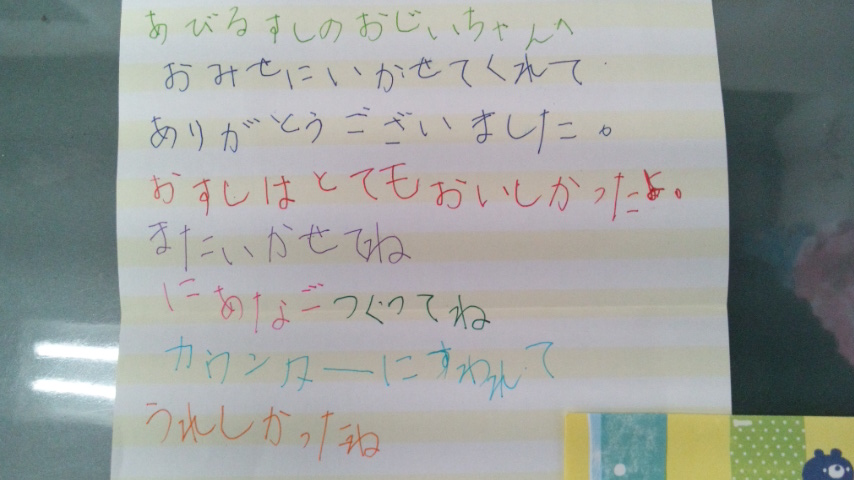 あびるすしのおじいちゃんへ
おみせにいかせてくれて
ありがとうございました。
おすしはとてもおいしかったよ。
またいかせてね
にあなごつくってね
カウンターにすわれて
うれしかったね